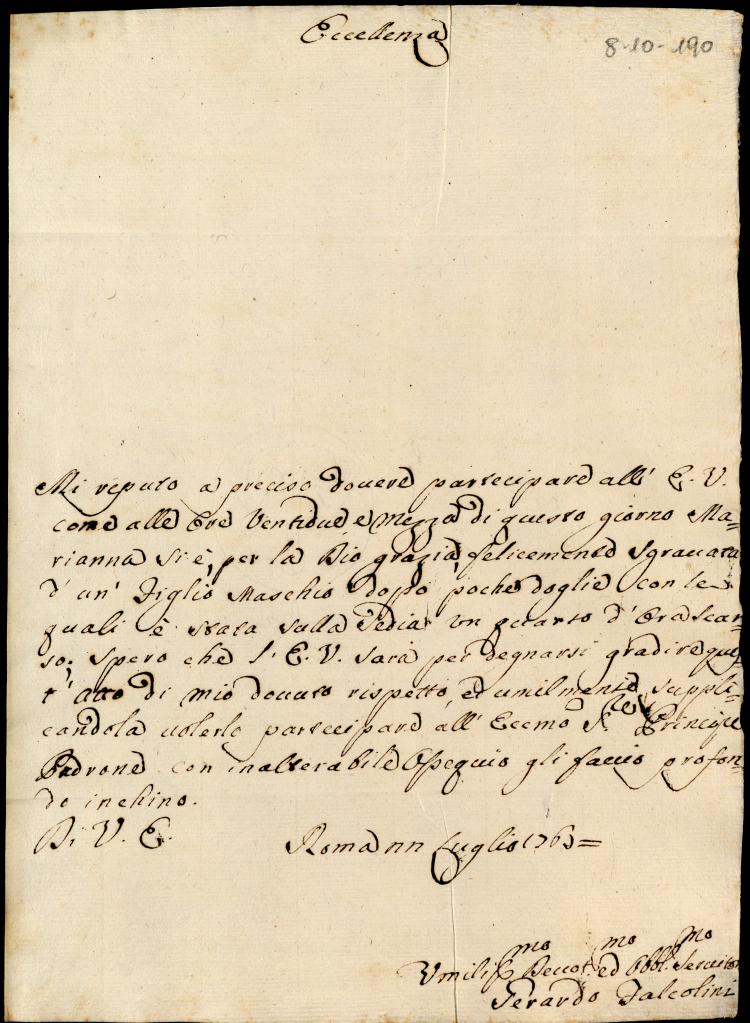 Eccellenza
8-10-190
Mi reputo a preciso dovere partecipare all' E. V.
come alle Ore Ventidue e mezza di questo giorno Ma=
rianna si è, per la Dio grazia, felicemente sgravata
d' un' Figlio Maschio dopo poche doglie con le
quali è stata sulla Sedia un quarto d' Ora scar=
so; spero che l' E. V. sarà per degnarsi gradire ques=
t' atto di mio dovuto rispetto, ed umilmente suppli=
candola volerlo partecipare all' Eccmo Sr Principe
Padrone con inalterabile Ossequio gli faccio profon=
do inchino.
Di V. E.
Roma Luglio 176
Umiliss.mo Devot.mo ed Obbl.mo Servitor
Gerardo Falcolini